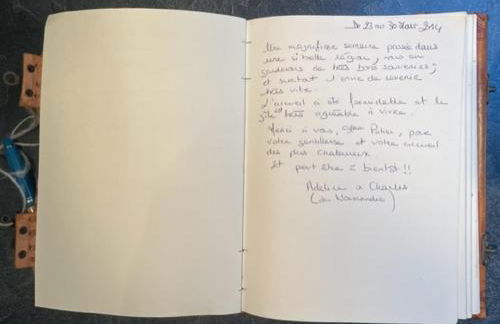 Du 23 au 30 Mars 2014
Une magnifique semaine passée dans
une si belle région, nous en
garderons de très bons souvenirs,
et surtout l'envie de revenir
très vite.
L'accueil a été formidable et le
gîte est très agréable à vivre.
Merci à vous, pour
votre gentillesse et votre accueil
des plus chaleureux
Et peut être à bientôt !!
Adeline & Charles
(de Normandie)